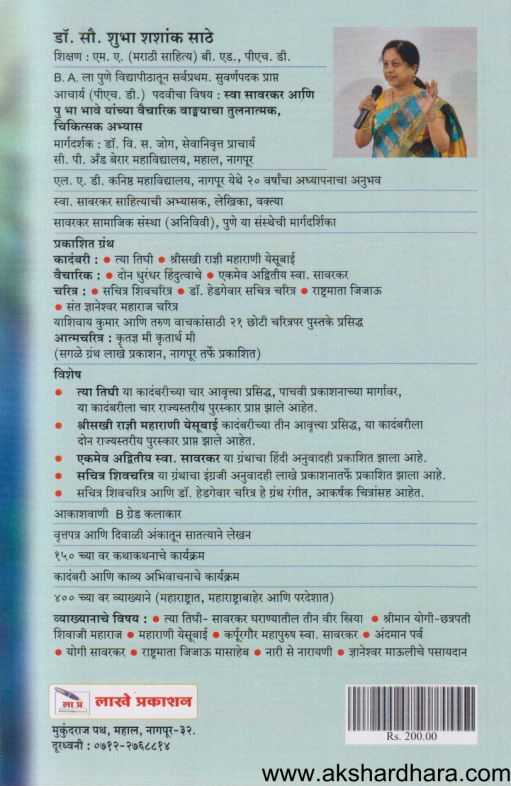 डॉ. सौ. शुभा शशांक साठे
शिक्षण : एम. ए. (मराठी साहित्य) बी. एड., पीएच. डी.
B. A. ला पुणे विद्यापीठातून सर्वप्रथम. सुवर्णपदक प्राप्त
आचार्य (पीएच. डी.) पदवीचा विषय : स्वा सावरकर आणि
पु भा भावे यांच्या वैचारिक वाङ्मयाचा तुलनात्मक,
चिकित्सक अभ्यास
मार्गदर्शक : डॉ. वि. स. जोग, सेवानिवृत्त प्राचार्य
सी. पी. अँड बेरार महाविद्यालय, महाल, नागपूर
एल. ए. डी. कनिष्ठ महाविद्यालय, नागपूर येथे २० वर्षांचा अध्यापनाचा अनुभव
स्वा. सावरकर साहित्याची अभ्यासक, लेखिका, वक्त्या
सावरकर सामाजिक संस्था (अनिविवी), पुणे या संस्थेची मार्गदर्शिका
प्रकाशित ग्रंथ
कादंबरी : ● त्या तिघी ● श्रीसखी राज्ञी महाराणी येसूबाई
वैचारिक : ● दोन धुरंधर हिंदुत्वाचे ● एकमेव अद्वितीय स्वा. सावरकर
चरित्र : ● सचित्र शिवचरित्र ● डॉ. हेडगेवार सचित्र चरित्र ● राष्ट्रमाता जिजाऊ
● संत ज्ञानेश्वर महाराज चरित्र
याशिवाय कुमार आणि तरुण वाचकांसाठी २१ छोटी चरित्रपर पुस्तके प्रसिद्ध
आत्मचरित्र : कृतज्ञ मी कृतार्थ मी
(सगळे ग्रंथ लाखे प्रकाशन, नागपूर तर्फे प्रकाशित)
विशेष
● त्या तिघी या कादंबरीच्या चार आवृत्त्या प्रसिद्ध, पाचवी प्रकाशनाच्या मार्गावर,
या कादंबरीला चार राज्यस्तरीय पुरस्कार प्राप्त झाले आहेत.
● श्रीसखी राज्ञी महाराणी येसूबाई कादंबरीच्या तीन आवृत्त्या प्रसिद्ध, या कादंबरीला
दोन राज्यस्तरीय पुरस्कार प्राप्त झाले आहेत.
● एकमेव अद्वितीय स्वा. सावरकर या ग्रंथाचा हिंदी अनुवादही प्रकाशित झाला आहे.
● सचित्र शिवचरित्र या ग्रंथाचा इंग्रजी अनुवादही लाखे प्रकाशनातर्फे प्रकाशित झाला आहे.
● सचित्र शिवचरित्र आणि डॉ. हेडगेवार चरित्र हे ग्रंथ रंगीत, आकर्षक चित्रांसह आहेत.
आकाशवाणी B ग्रेड कलाकार
वृत्तपत्र आणि दिवाळी अंकातून सातत्याने लेखन
१५० च्या वर कथाकथनाचे कार्यक्रम
कादंबरी आणि काव्य अभिवाचनाचे कार्यक्रम
४०० च्या वर व्याख्याने (महाराष्ट्रात, महाराष्ट्राबाहेर आणि परदेशात)
व्याख्यानाचे विषय : ● त्या तिघी- सावरकर घराण्यातील तीन वीर स्त्रिया ● श्रीमान योगी-छत्रपती
शिवाजी महाराज ● महाराणी येसूबाई ● कर्पूरगौर महापुरुष स्वा. सावरकर ● अंदमान पर्व
● योगी सावरकर ● राष्ट्रमाता जिजाऊ मासाहेब ● नारी से नारायणी ● ज्ञानेश्वर माऊलीचे पसायदान
ला प्र लाखे प्रकाशन
मुकुंदराज पथ, महाल, नागपूर-३२.
दूरध्वनी : ०७१२-२७६८८१४
Rs. 200.00
www.akshardhara.com